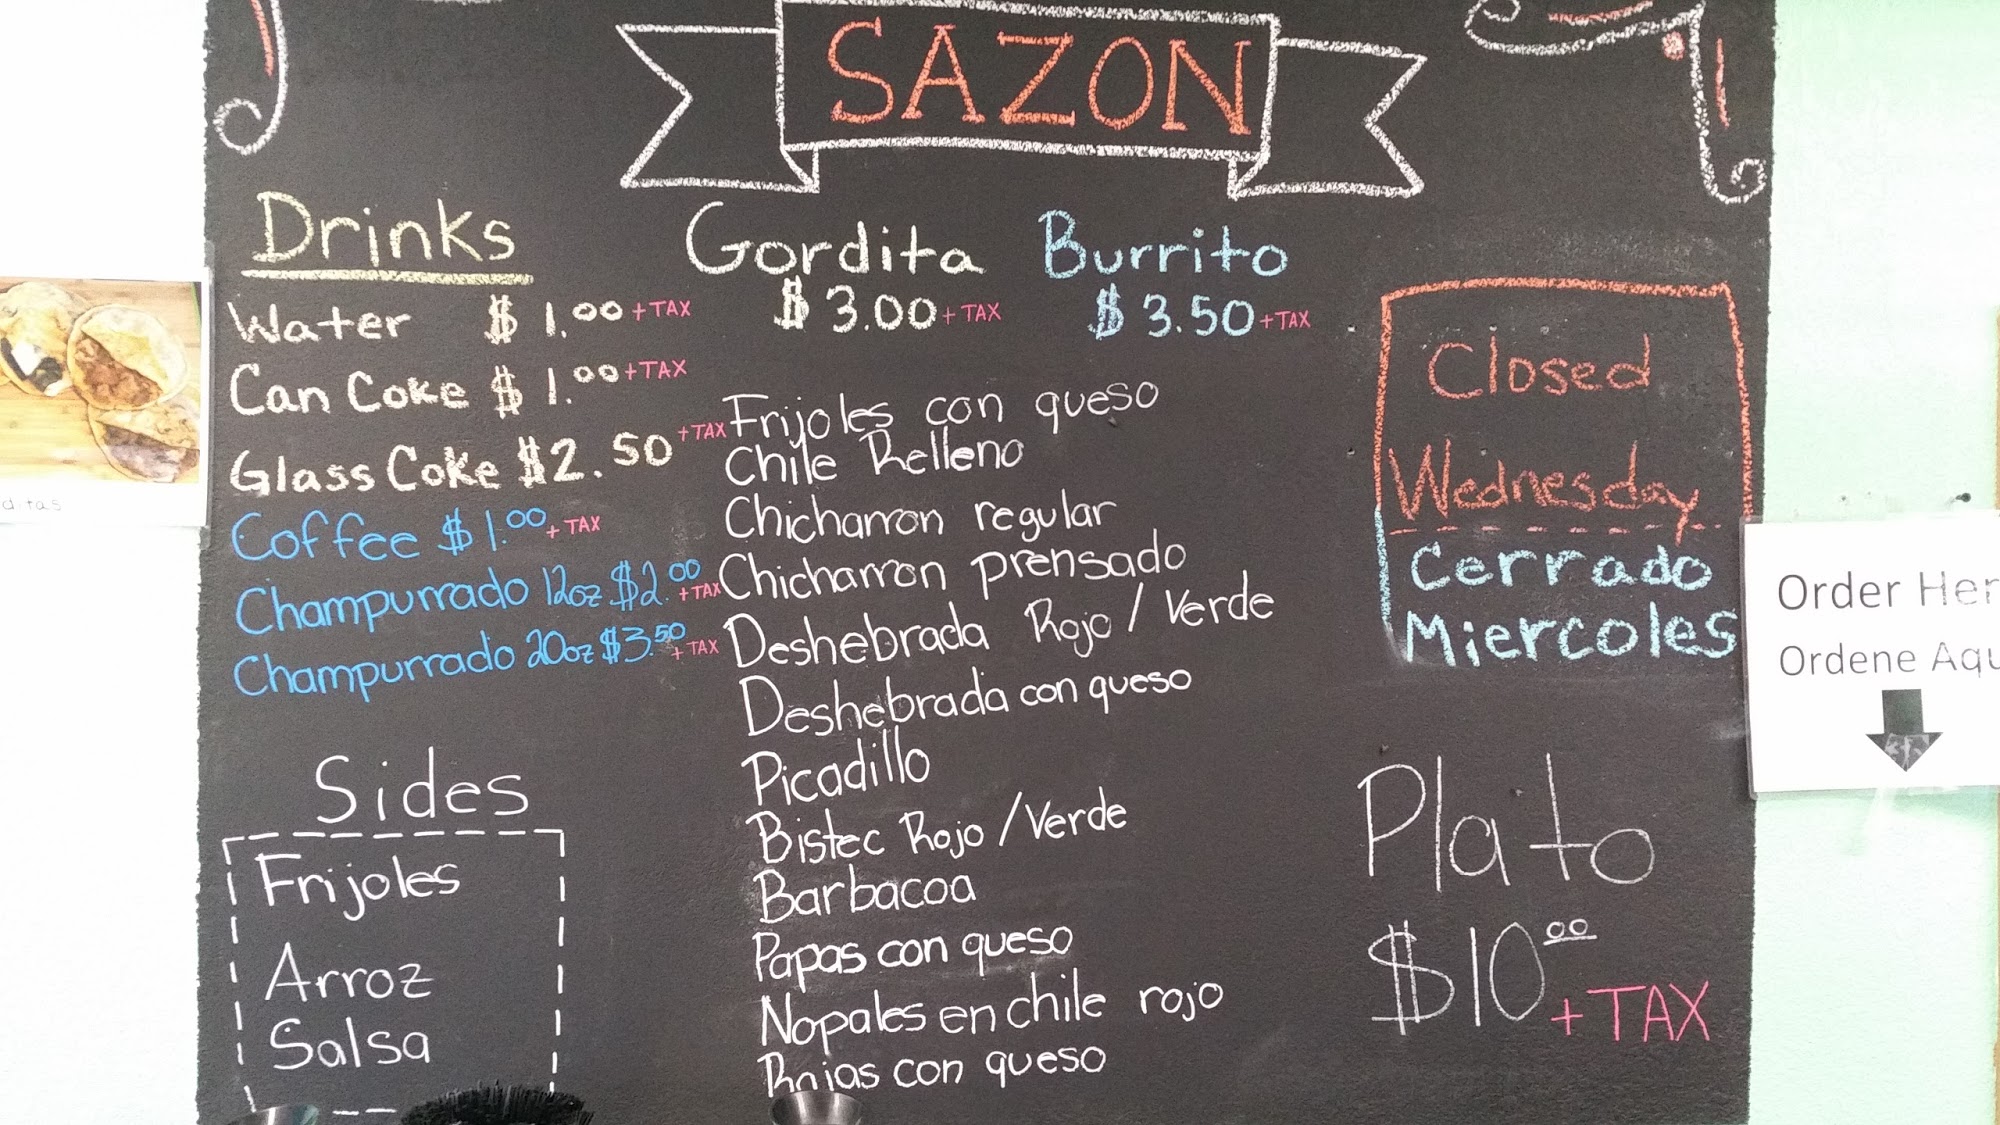 SAZON
Drinks
Water $1.00 + TAX
Can Coke $1.00 + TAX
Glass Coke $2.50 + TAX
Coffee $1.00 + TAX
Champurrado 12oz $2.00 + TAX
Champurrado 20oz $3.50 + TAX
Sides
Frijoles
Arroz
Salsa
Gordita
$3.00 + TAX
Burrito
$3.50 + TAX
Frijoles con queso
Chile Relleno
Chicharron regular
Chicharron prensado
Deshebrada Rojo / Verde
Deshebrada con queso
Picadillo
Bistec Rojo / Verde
Barbacoa
Papas con queso
Nopales en chile rojo
Rajas con queso
Closed
Wednesday
Cerrado
Miercoles
Plato
$10.00 + TAX
ditas
Order Her
Ordene Aqu